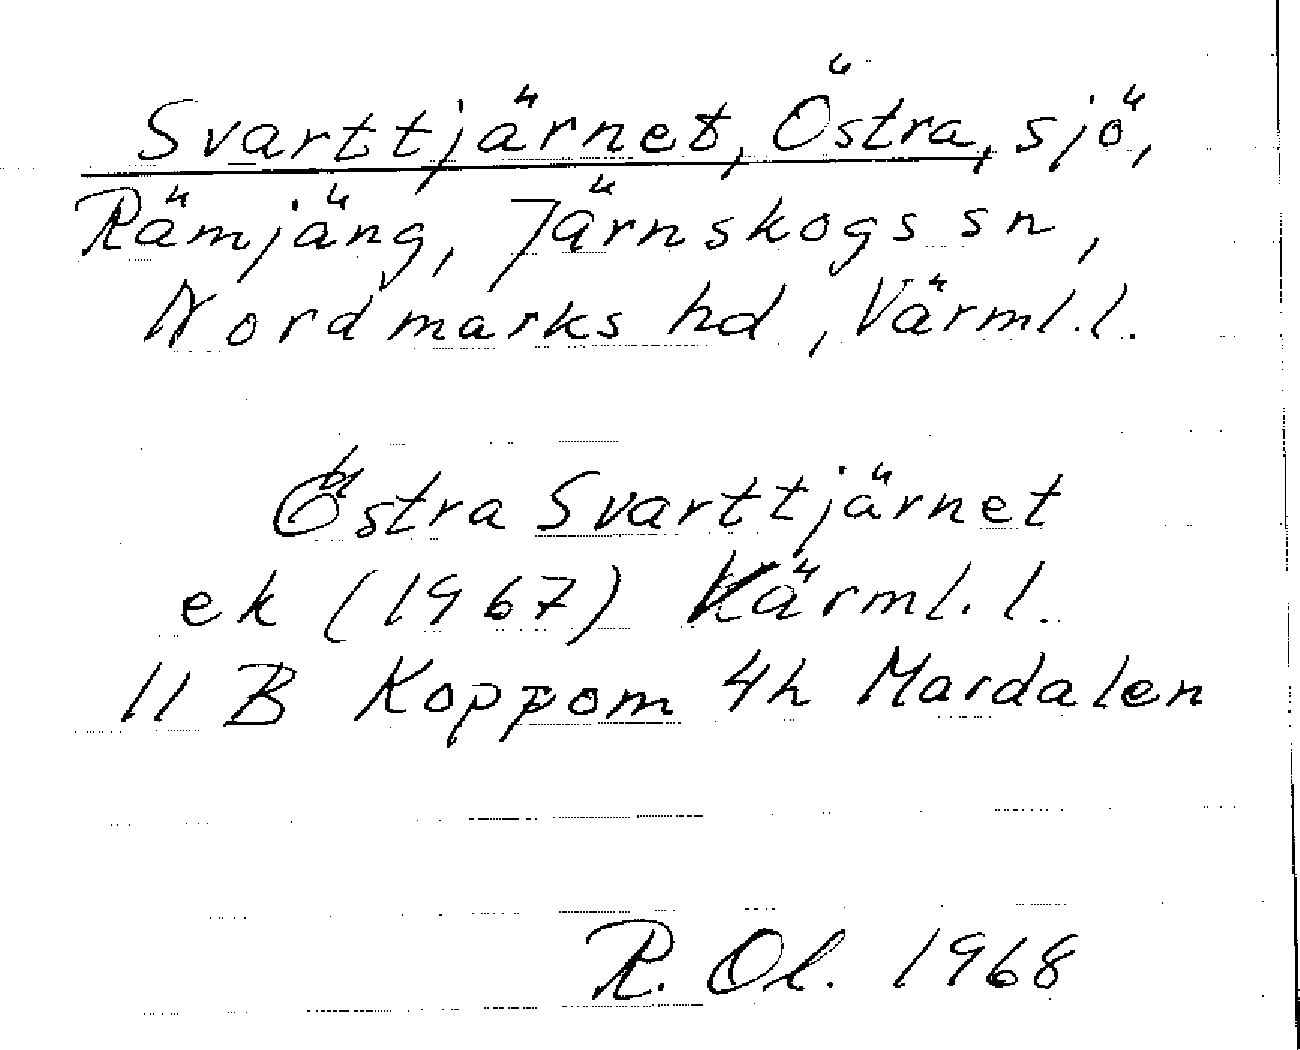 Svarttjärnet, Östra, sjö,
Rämjäng, Järnskogs sn,
Nordmarks hd, Värml.l.
Östra Svarttjärnet
ek (1967) Värml.l.
11 B Koppom 4h Mardalen
R. Ol. 1968